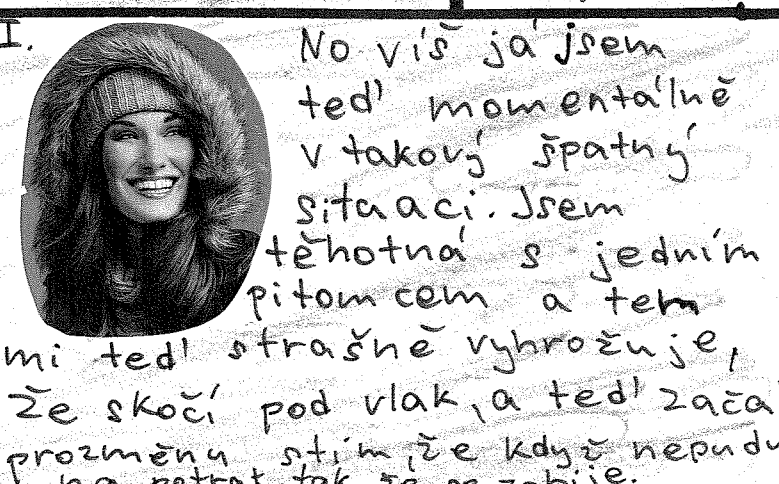 I.
No víš já jsem
teď momentálně
v takový špatný
situaci. Jsem
těhotná s jedním
pitomcem a ten
mi teď strašně vyhrožuje,
že skočí pod vlak, a teď zača
prozměnu stím, že když nepudu
na potrat tak že se zabije.